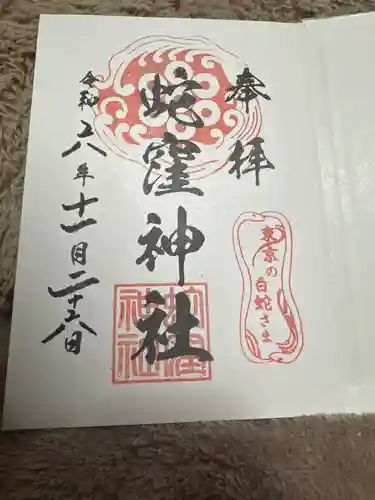 奉拝
東京の白蛇さま
蛇窪神社
蛇窪神社
令和六年十一月二十六日